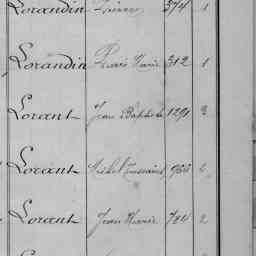 Lorandin Pierre 374 1
Lorandin Pierre Marie 312 1
Lorant Jean Baptiste 1291 3
Lorant Michel Toussaint 2
Lorant Jean Marie 784 2